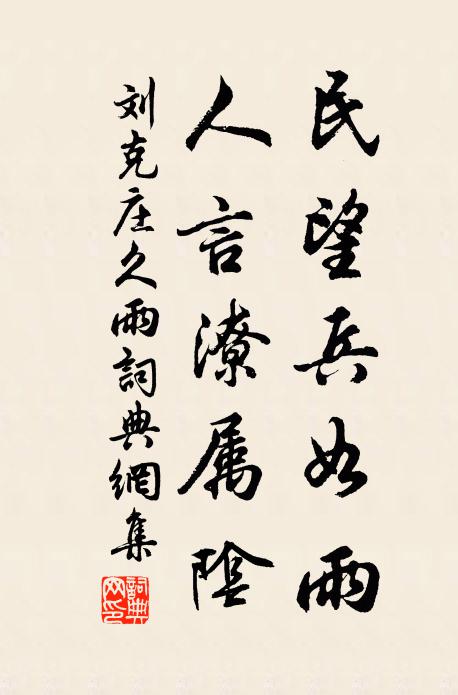 民望兵如雨
人言潦属陰
刘克庄久雨詞典網集
詞典網印